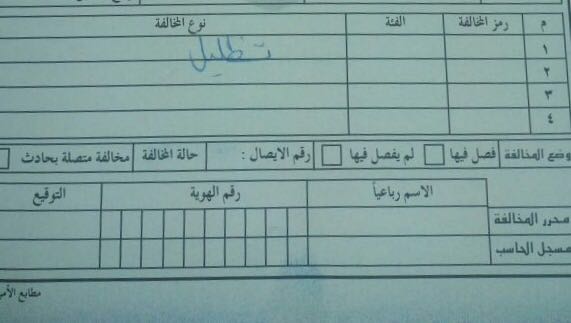 م رمز المخالفة الفئة نوع المخالفة
١ تظليل
٢
٣
٤
وضع المخالفة فصل فيها لم يفصل فيها رقم الايصال : حالة المخالفة مخالفة متصلة بحادث
الاسم رباعياً رقم الهوية التوقيع
محرر المخالفة
مسجل الحاسب
مطابع الأمن